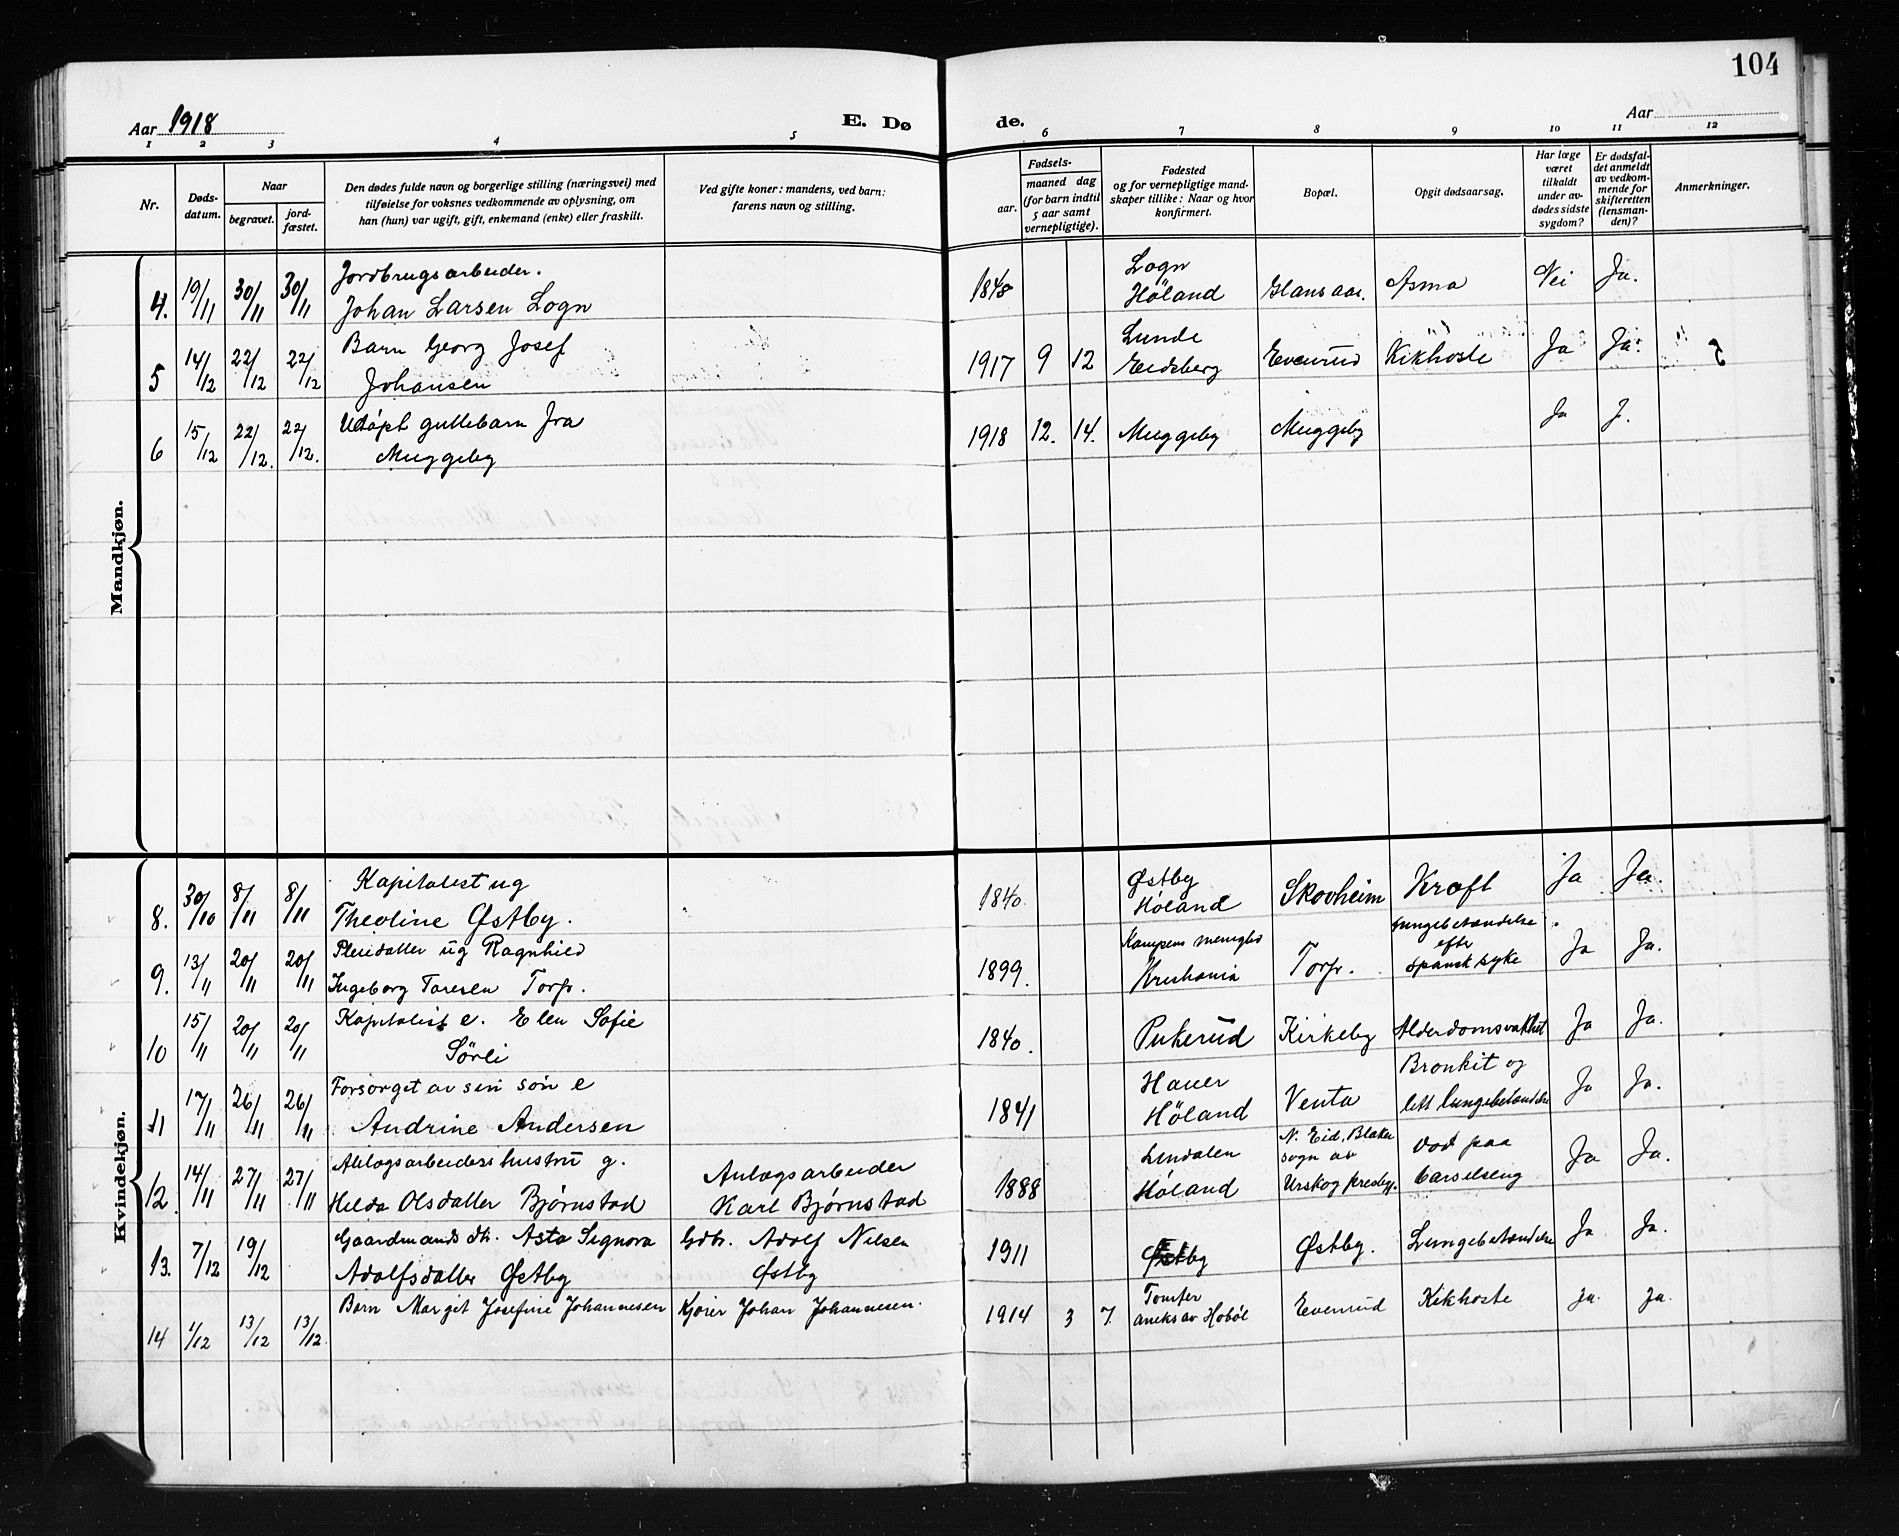 104
Aar 1918
E. Dø
de.
Aar
1 2 3 4 5 6 7 8 9 10 11 12
Nr.
Døds-
datum.
Naar
begravet.
jord-
fæstet.
Den dødes fulde navn og borgerlige stilling (næringsvei) med
tilføielse for voksnes vedkommende av oplysning, om
han (hun) var ugift, gift, enkemand (enke) eller fraskilt.
Ved gifte koner: mandens, ved barn:
farens navn og stilling.
Fødsels-
aar.
maaned dag
(for barn indtil
5 aar samt
vernepligtige).
Fødested
og for vernepligtige mand-
skaper tillike: Naar og hvor
konfirmert.
Bopæl.
Opgit dødsaarsag.
Har læge
været
tilkaldt
under av-
dødes sidste
sygdom?
Er dødsfal-
det anmeldt
av vedkom-
mende for
skifteretten
(lensman-
den)?
Anmerkninger.
Mandkjøn.
4. 19/11 30/11 30/11
Jordbrugsarbeider.
Johan Larsen Logn
1848
Logn
Høland
Asma Nei Ja.
5 14/12 22/12 22/12
Barn Georg Josef
Johansen
1917 9 12
Lunde
Eidsberg
Evenrud Kikhoste Ja Ja.
6 15/12 22/12. 22/12.
Udøpt guttebarn fra
Muggeby
1918 12. 14. Muggeby Muggeby Ja J.
Kvindekjøn.
8. 30/10 8/11 8/11
Kapitalist ug
Theoline Østby.
1840.
Østby
Høland
Skovheim Kræft Ja Ja.
9. 13/11 20/11 20/11
Pleiedatter ug Ragnhild
Ingeborg Toresen Torp.
1899.
Kampens menighed
Kristiania
Torp.
Lungebetændelse
efter
spansk syke
Ja Ja.
10 15/11 20/11 20/11
Kapitalist e. Elen Sofie
Sørli
1840.
Pukerud Kirkeby Alderdomsvakhet Ja Ja.
11 17/11 26/11 26/11
Forsørget av sin søn e
Andrine Andersen
1841
Hauer
Høland
Venta
Bronkit og
lett lungebetændelse
Ja Ja.
12. 14/11 27/11 27/11
Anlægsarbeiders hustru g.
Hilda Olsdatter Bjørnstad
Anlægsarbeider
Karl Bjørnstad
1888
Lindalen
Høland
N. Eid, Blaker
sogn av
Urskog prestegj.
Død paa
barselseng
Ja Ja.
13. 7/12 19/12
Gaardmands dtr. Asta Signora
Adolfsdatter Østby
Gdbr. Adolf Nilsen
Østby
1911
Østby Østby. Lungebetændelse Ja Ja.
14 1/12 13/12 13/12.
Barn Margit Josefine Johannesen Kjører Johan Johannesen.
1914 3 7.
Tomter
aneks av Hobøl
Evenrud Kikhoste Ja. Ja.